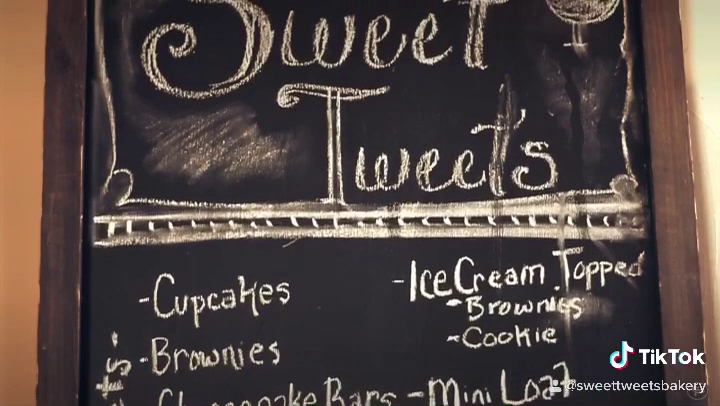 Sweet
Tweet's
-Cupcakes
-Brownies
-Ice Cream Topped
-Brownies
-Cookie
Bars -Mini Loaf
TikTok
@sweettweetsbakery